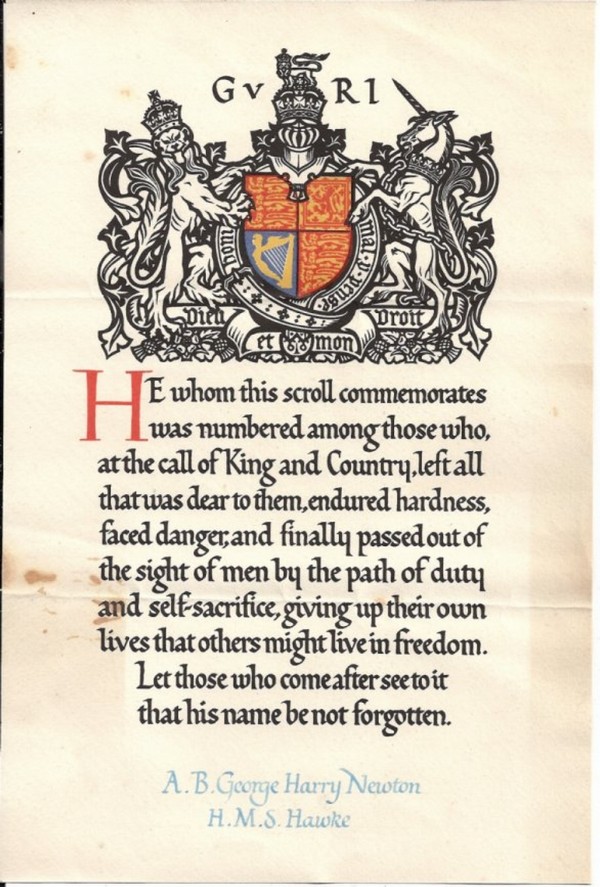 GV RI
Dieu et mon Droit
HE whom this scroll commemorates
was numbered among those who,
at the call of King and Country, left all
that was dear to them, endured hardness,
faced danger, and finally passed out of
the sight of men by the path of duty
and self-sacrifice, giving up their own
lives that others might live in freedom.
Let those who come after see to it
that his name be not forgotten.
A.B. George Harry Newton
H.M.S. Hawke